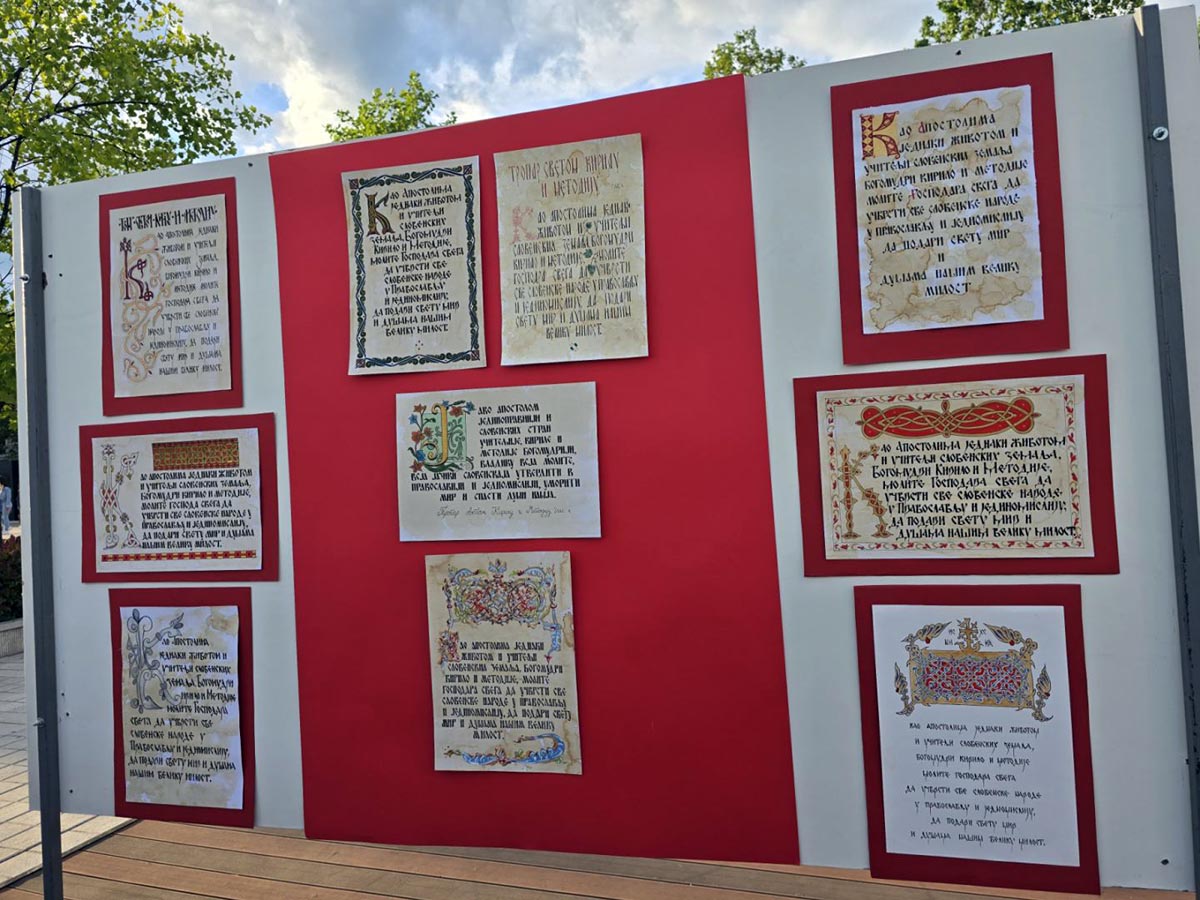 К
АО АПОСТОЛИМА
ЈЕДНАКИ ЖИВОТОМ
И УЧИТЕЉИ
СЛОВЕНСКИХ
ЗЕМАЉА, БОГОМУДРИ
КИРИЛО И МЕТОДИЈЕ,
МОЛИТЕ ГОСПОДАРА СВЕГА
ДА УЧВРСТИ СВЕ
СЛОВЕНСКЕ НАРОДЕ
У ПРАВОСЛАВЉУ
И ЈЕДИНОМИСЛИЈУ,
ДА ПОДАРИ СВЕТУ МИР
И ДУШАМА НАШИМ
ВЕЛИКУ МИЛОСТ.
ТРОПАР СВЕТОМ КИРИЛУ
И МЕТОДИЈУ
К
АО АПОСТОЛИМА
ЖИВОТОМ И УЧИТЕЉИ
СЛОВЕНСКИХ ЗЕМАЉА БОГОМУДРИ
КИРИЛО И МЕТОДИЈЕ МОЛИТЕ
ГОСПОДА СВЕГА ДА УЧВРСТИ
СВЕ СЛОВЕНСКЕ НАРОДЕ У ПРАВОСЛАВЉУ
И ЈЕДИНОМИСЛИЈУ ДА ПОДАРИ
СВЕТУ МИР И ДУШАМА НАШИМ
ВЕЛИКУ МИЛОСТ.
К
АО АПОСТОЛИМА
ЈЕДНАКИ ЖИВОТОМ И
УЧИТЕЉИ СЛОВЕНСКИХ ЗЕМАЉА
БОГОМУДРИ КИРИЛО И МЕТОДИЈЕ
МОЛИТЕ ГОСПОДАРА СВЕГА ДА
УЧВРСТИ СВЕ СЛОВЕНСКЕ НАРОДЕ
У ПРАВОСЛАВЉУ И ЈЕДНОМИСЛИЈУ
ДА ПОДАРИ СВЕТУ МИР
И
ДУШАМА НАШИМ ВЕЛИКУ
МИЛОСТ
К
АО АПОСТОЛИМА
ЈЕДНАКИ ЖИВОТОМ
И УЧИТЕЉИ
СЛОВЕНСКИХ ЗЕМАЉА,
БОГОМУДРИ КИРИЛО И
МЕТОДИЈЕ МОЛИТЕ
ГОСПОДАРА СВЕГА
ДА УЧВРСТИ СВЕ СЛОВЕНСКЕ
НАРОДЕ У ПРАВОСЛАВЉУ И
ЈЕДИНОМИСЛИЈУ, ДА ПОДАРИ
СВЕТУ МИР И ДУШАМА
НАШИМ ВЕЛИКУ МИЛОСТ.
К
АО АПОСТОЛИМА ЈЕДНАКИ ЖИВОТОМ
И УЧИТЕЉИ СЛОВЕНСКИХ ЗЕМАЉА,
БОГОМУДРИ КИРИЛО И МЕТОДИЈЕ,
МОЛИТЕ ГОСПОДА СВЕГА ДА
УЧВРСТИ СВЕ СЛОВЕНСКЕ НАРОДЕ У
ПРАВОСЛАВЉУ И ЈЕДИНОМИСЛИЈУ,
ДА ПОДАРИ СВЕТУ МИР И ДУШАМА
НАШИМ ВЕЛИКУ МИЛОСТ.
Ј
АКО АПОСТОЛОМ
ЈЕДИНОПРАВНИЈИ И
СЛОВЕНСКИХ СТРАН
УЧИТЕЉИЈЕ, КИРИЛЕ И
МЕТОДИЈЕ БОГОМУДРИЈИ,
ВЛАДИКУ ВСЈА МОЛИТЕ,
ВСЈА ЈАЗИКИ СЛОВЕНСКАЈА УТВЕРДИТИ В
ПРАВОСЛАВИЈИ И ЈЕДНОМИСЛИЈИ, УМИРИТИ
МИР И СПАСТИ ДУШИ НАША.
К
АО АПОСТОЛИМА ЈЕДНАКИ ЖИВОТОМ
И УЧИТЕЉИ СЛОВЕНСКИХ ЗЕМАЉА,
БОГОМУДРИ КИРИЛО И МЕТОДИЈЕ,
МОЛИТЕ ГОСПОДАРА СВЕГА ДА
УЧВРСТИ СВЕ СЛОВЕНСКЕ НАРОДЕ
У ПРАВОСЛАВЉУ И ЈЕДИНОМИСЛИЈУ,
ДА ПОДАРИ СВЕТУ МИР И
ДУШАМА НАШИМ ВЕЛИКУ МИЛОСТ.
К
АО АПОСТОЛИМА
ЈЕДНАКИ ЖИВОТОМ И
УЧИТЕЉИ СЛОВЕНСКИХ
ЗЕМАЉА, БОГОМУДРИ
КИРИЛО И МЕТОДИЈЕ
МОЛИТЕ ГОСПОДАРА
СВЕГА ДА УЧВРСТИ СВЕ
СЛОВЕНСКЕ НАРОДЕ У
ПРАВОСЛАВЉУ И ЈЕДИНОМИСЛИЈУ,
ДА ПОДАРИ СВЕТУ МИР И ДУШАМА
НАШИМ ВЕЛИКУ МИЛОСТ.
К
АО АПОСТОЛИМА ЈЕДНАКИ
ЖИВОТОМ И УЧИТЕЉИ
СЛОВЕНСКИХ ЗЕМАЉА, БОГОМУДРИ
КИРИЛО И МЕТОДИЈЕ, МОЛИТЕ
ГОСПОДАРА СВЕГА ДА УЧВРСТИ СВЕ
СЛОВЕНСКЕ НАРОДЕ У ПРАВОСЛАВЉУ
И ЈЕДИНОМИСЛИЈУ, ДА ПОДАРИ СВЕТУ
МИР И ДУШАМА НАШИМ ВЕЛИКУ
МИЛОСТ.
КАО АПОСТОЛИМА ЈЕДНАКИ ЖИВОТОМ
И УЧИТЕЉИ СЛОВЕНСКИХ ЗЕМАЉА,
БОГОМУДРИ КИРИЛО И МЕТОДИЈЕ
МОЛИТЕ ГОСПОДАРА СВЕГА
ДА УЧВРСТИ СВЕ СЛОВЕНСКЕ НАРОДЕ
У ПРАВОСЛАВЉУ И ЈЕДИНОМИСЛИЈУ,
ДА ПОДАРИ СВЕТУ МИР
И ДУШАМА НАШИМ ВЕЛИКУ МИЛОСТ.